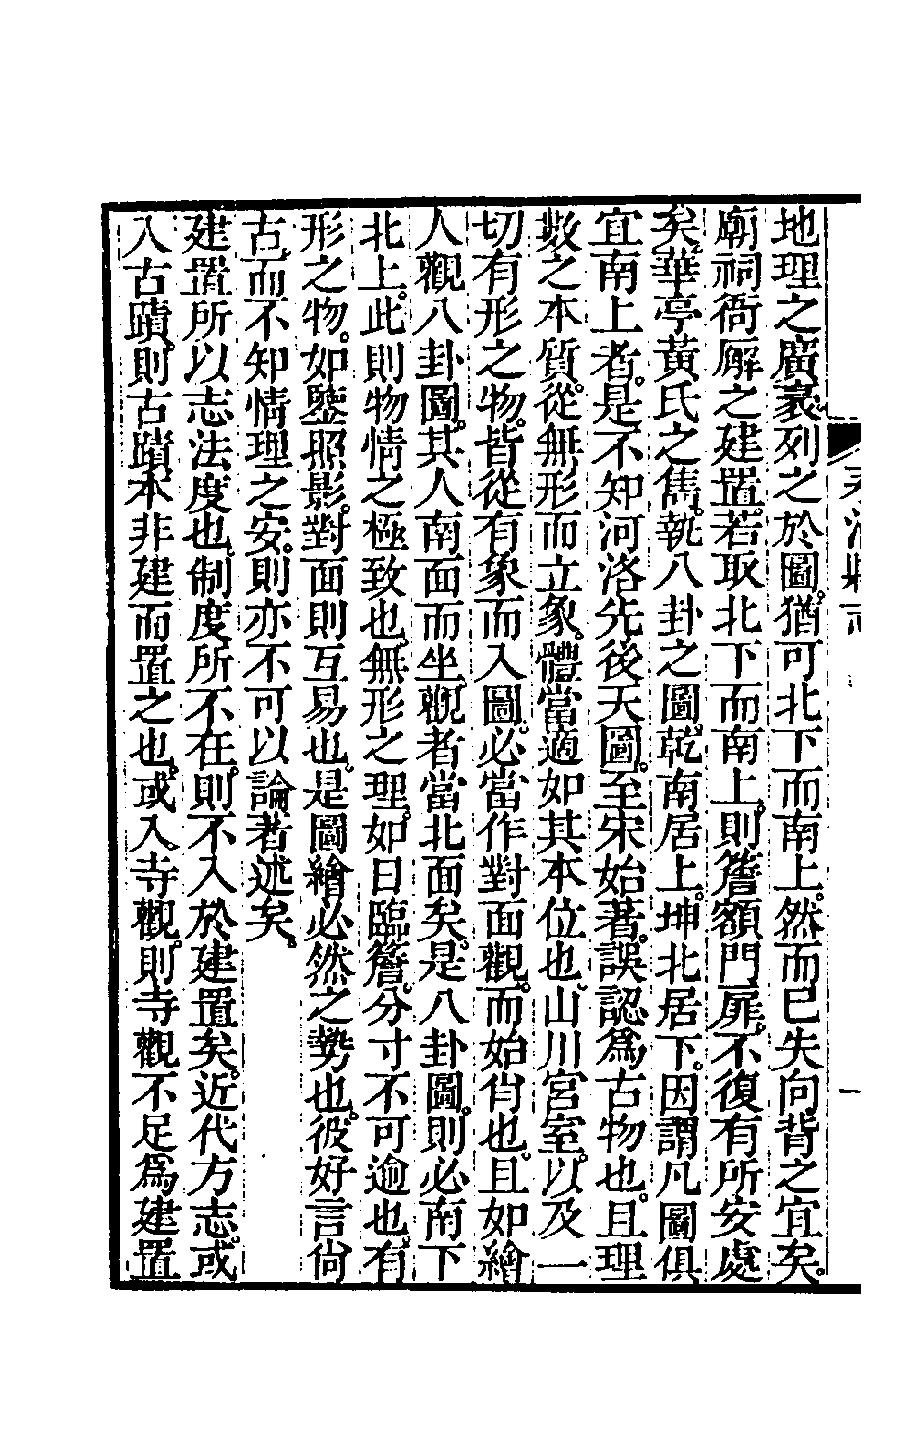 地理之廣袤列之於圖。猶可北下而南上。然而已失向背之宜矣。
廟祠衙廨之建置。若取北下而南上。則簷額門扉。不復有所安處
矣。華亭黃氏之雋。執八卦之圖。乾南居上。坤北居下。因謂凡圖俱
宜南上者。是不知河洛先後天圖。至宋始著。誤認為古物也。且理
數之本質。從無形而立象。體當適如其本位也。山川宮室。以及一
切有形之物。皆從有象而入圖。必當作對面觀。而始肖也。且如繪
人觀八卦圖。其人南面而坐。觀者當北面矣。是八卦圖。則必南下
北上。此則物情之極致也。無形之理。如日臨簷。分寸不可逾也。有
形之物。如鑒照影。對面則互易也。是圖繪必然之勢也。彼好言尙
古。而不知情理之安。則亦不可以論著述矣。
建置所以志法度也。制度所不在。則不入於建置矣。近代方志。或
入古蹟。則古蹟本非建而置之也。或入寺觀。則寺觀不足為建置